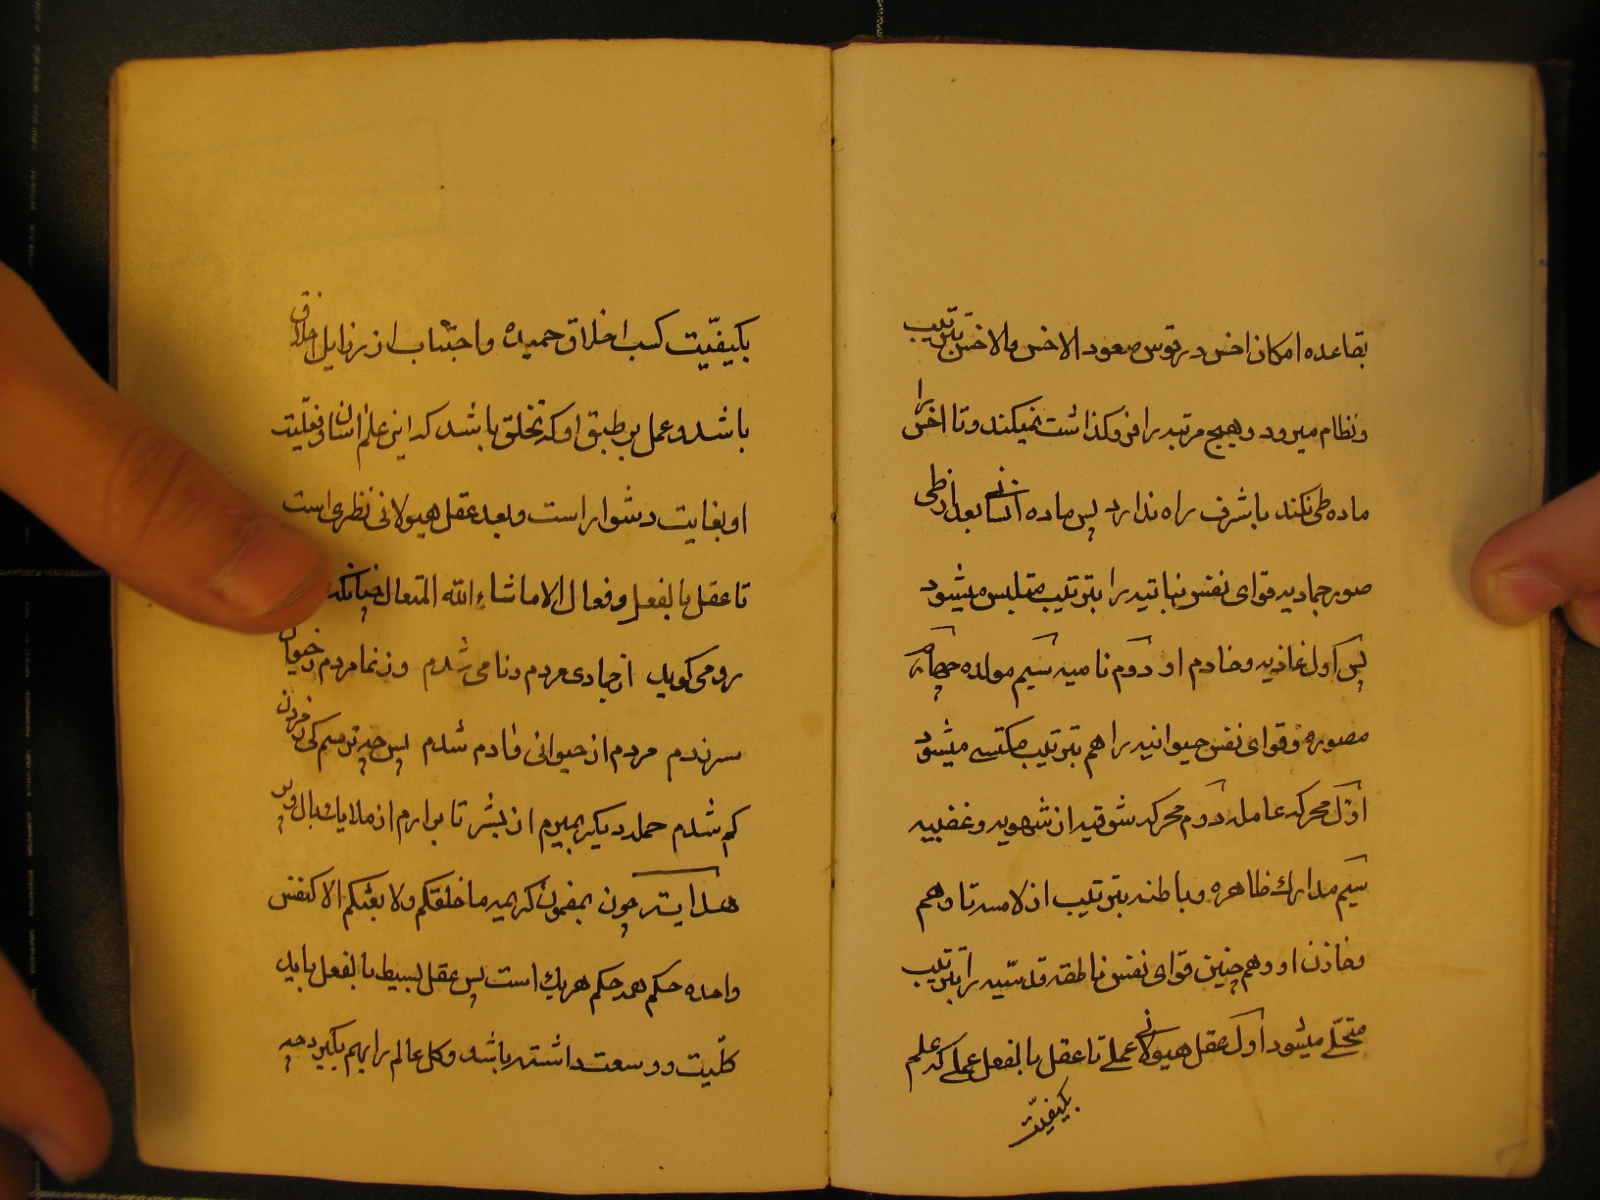 بقاعده امکان اخس در قوس صعود الاخس والاخس بترتیب
و نظام میرود و هیچ مرتبه را فروکذاشت نمیکند و تا اخس را
ماده طی نکند باشرف راه ندارد پس ماده انسانی بعد از طی
صور جمادیه قوای نفس نباتیه را بترتیب متلبس میشود
پس اول غاذیه و خادم او دوم نامیه سیم مولده چهارم
مصوره و قوای نفس حیوانیه را هم بترتیب مکتسی میشود
اول محرکه عامله دوم محرکه شوقیه از شهویه و غضبیه
سیم مدارک ظاهره و باطنه بترتیب از لامسه تا وهم
و خازن او و هم چنین قوای نفس ناطقه قدسیه را بترتیب
متحلی میشود اول عقل هیولانی عملی تا عقل بالفعل عملی که علم
بکیفیت
بکیفیت کسب اخلاق حمیده و اجتناب از رذایل اخلاق
باشد و عمل بر طبق او که تخلق باشد که این علم انسان و فعلیت
او بغایت دشوار است و بعد عقل هیولانی نظری است
تا عقل بالفعل و فعال الا ماشاء الله المتعال چنانکه
رومی کوید از جمادی مردم و نامی شدم وز نما مردم ز حیوان
سرزدم مردم از حیوانی و آدم شدم پس چه ترسم کی ز مردن
کم شدم حمله دیکر بمیرم از بشر تا برارم از ملایک بال و پر
هدایت چون بمضمون کریمه ما خلقکم ولا بعثکم الا کنفس
واحده حکم همه حکم هر یک است پس عقل بسیط بالفعل باید
کلیت و وسعت داشته باشد و کل عالم را بهم بکیرد چه